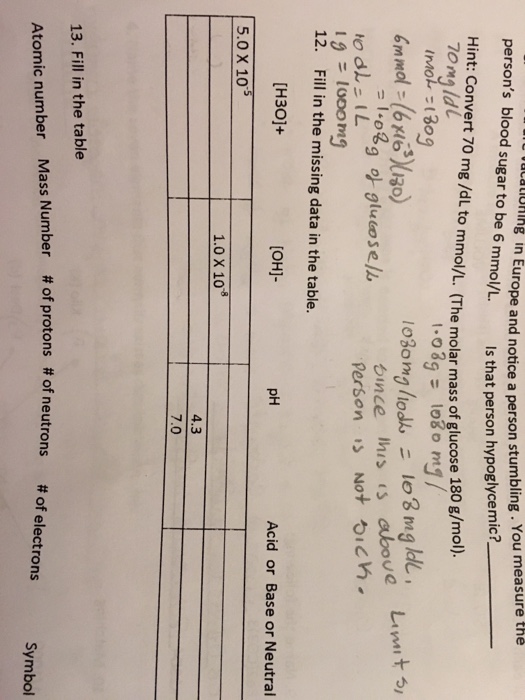 in Europe and notice a person stumbling. You measure the
person's blood sugar to be 6 mmol/L. Is that person hypoglycemic?
Hint: Convert 70 mg /dL to mmol/L. (The molar mass of glucose 180 g/mol).
70mg/dL
1mol = 180g
6mmol = (6×10⁻³)(180)
= 1.08g of glucose/L
10 dL = 1L
1g = 1000mg
1.08g = 1080 mg/
1080mg/10dL = 108mg/dL,
since this is above Limits,
Person is Not sick.
12. Fill in the missing data in the table.
[H3O]+ [OH]- pH Acid or Base or Neutral
5.0 X 10⁻⁵
1.0 X 10⁻⁸
4.3
7.0
13. Fill in the table
Atomic number Mass Number # of protons # of neutrons # of electrons Symbol